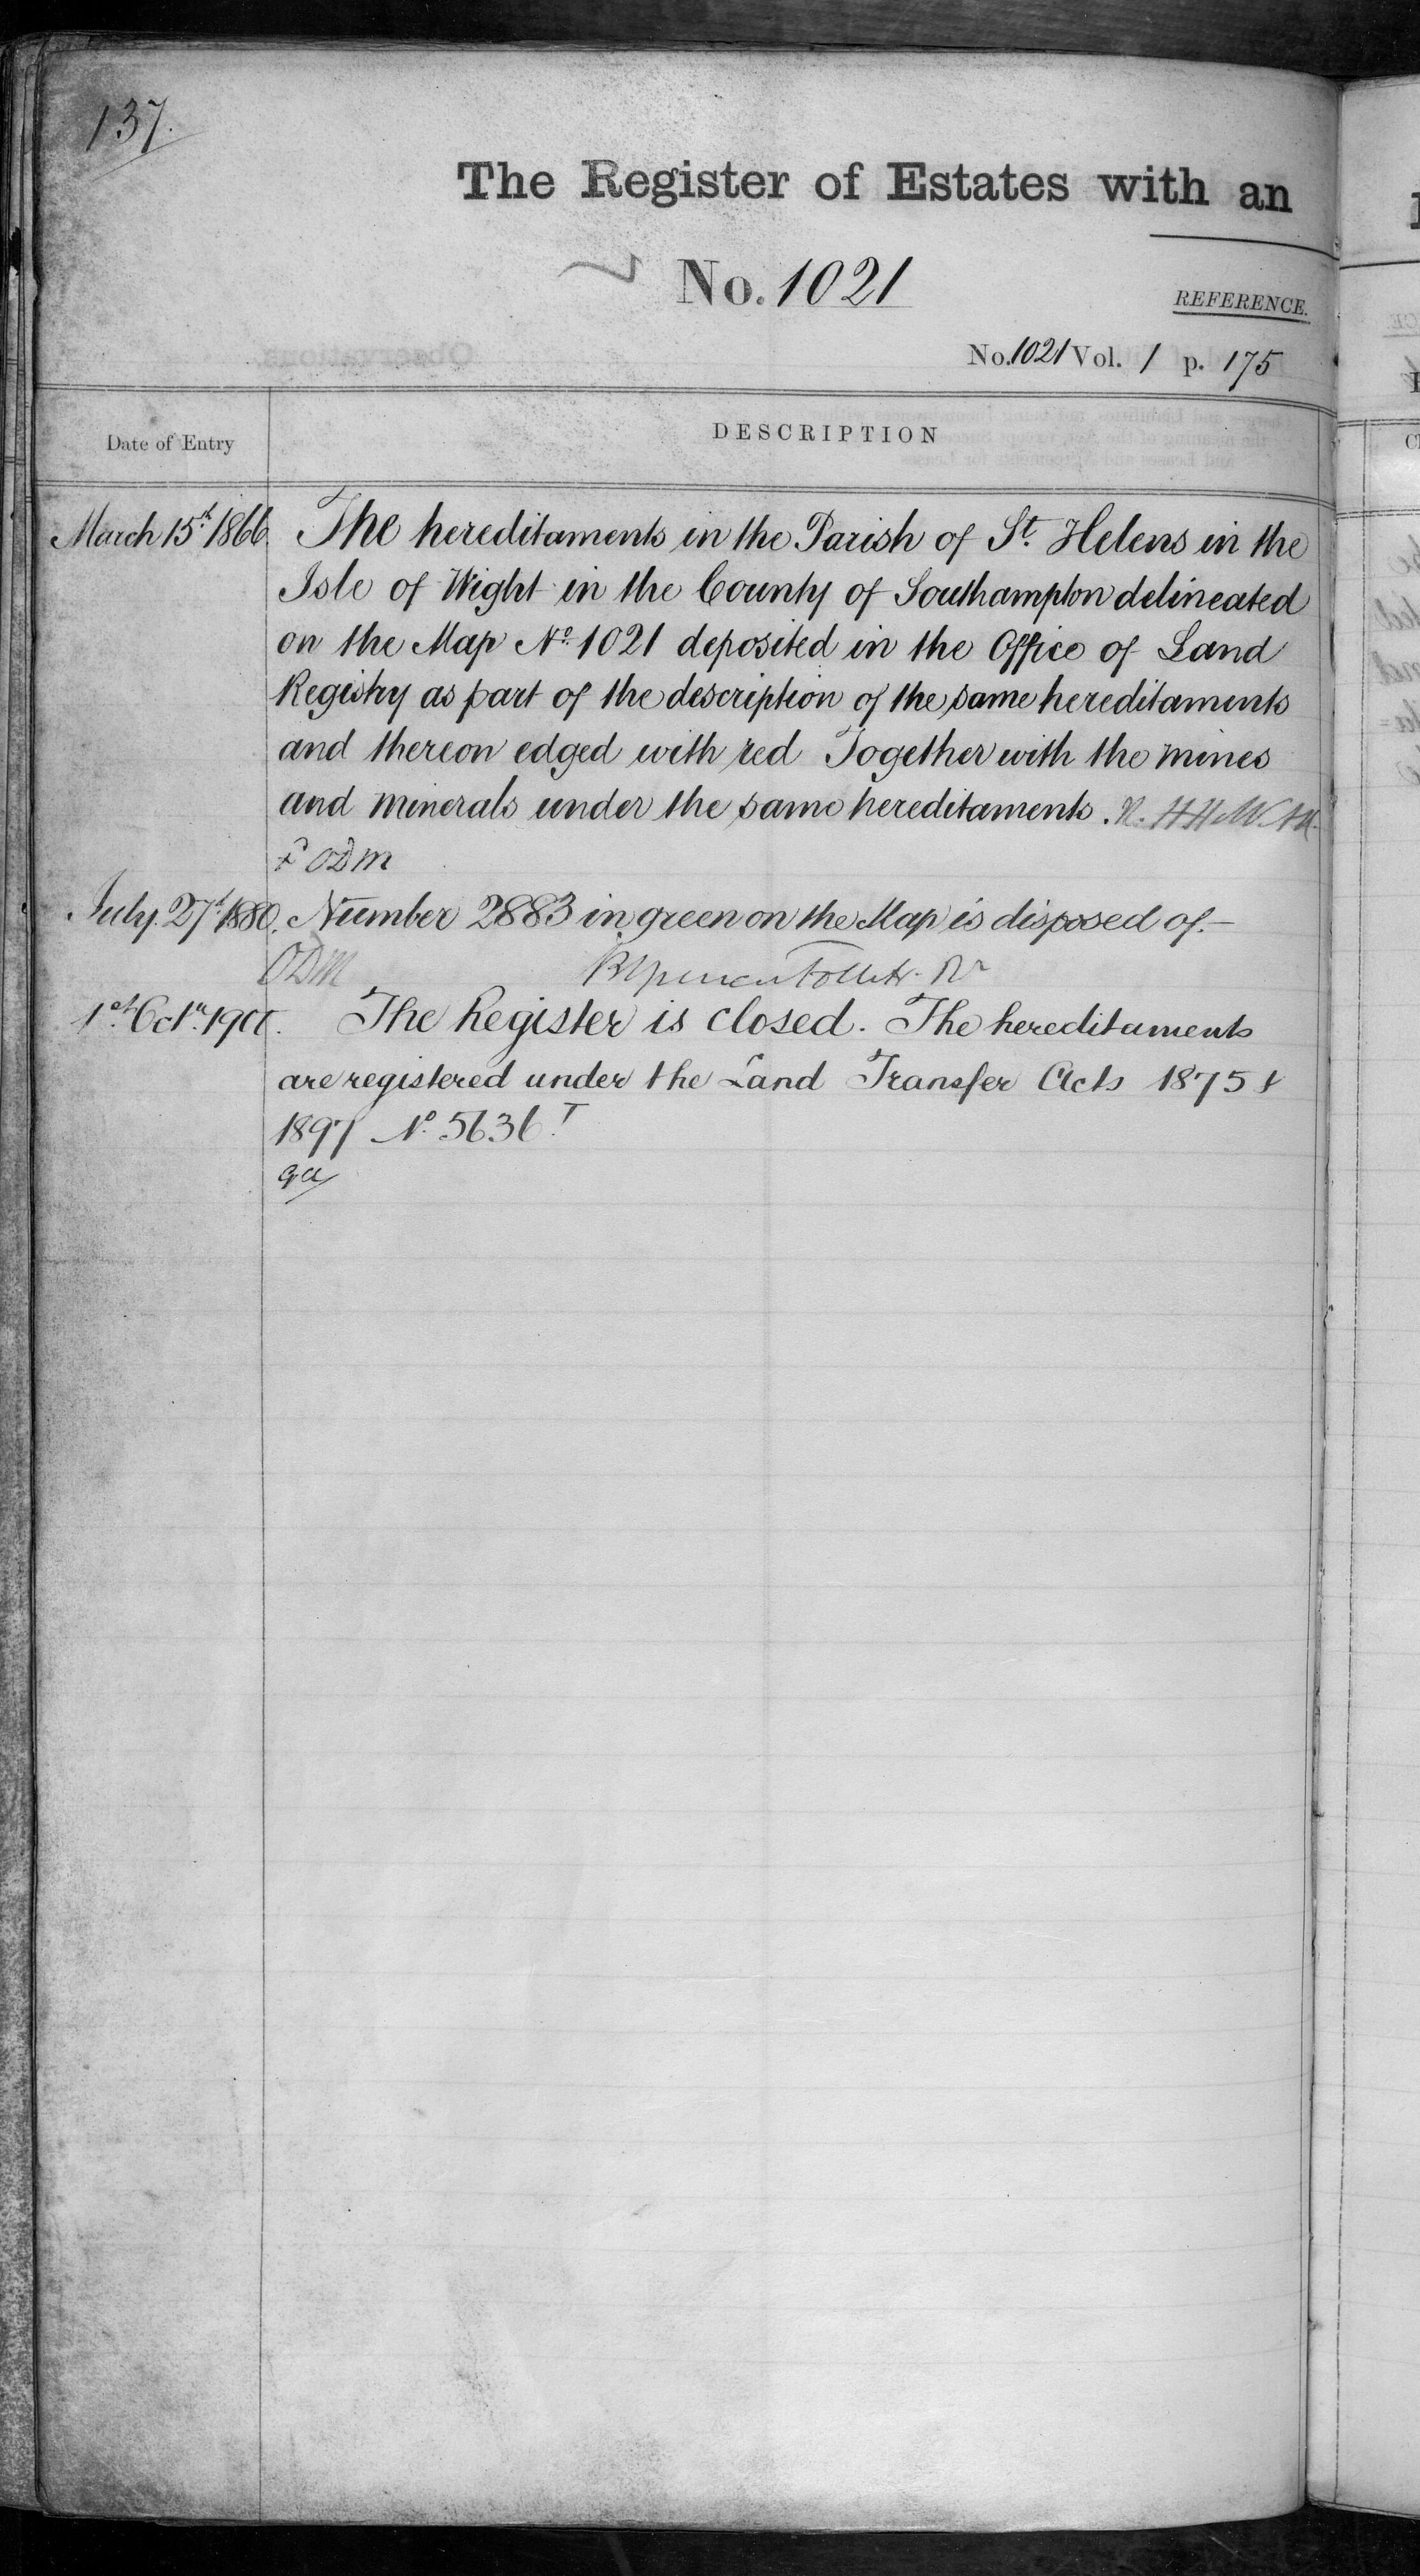 137.
The Register of Estates with an
No. 1021
REFERENCE.
No. 1021 Vol. 1 p. 175
Date of Entry
DESCRIPTION
March 15th 1866. The hereditaments in the Parish of St. Helens in the
Isle of Wight in the County of Southampton delineated
on the Map No. 1021 deposited in the Office of Land
Registry as part of the description of the same hereditaments
and thereon edged with red Together with the mines
and minerals under the same hereditaments.
ODM
July 27th 1880. Number 2883 in green on the Map is disposed of.—
ODM
1st Octr. The Register is closed. The hereditaments
are registered under the Land Transfer Acts 1875 &
1897 No. 5636T